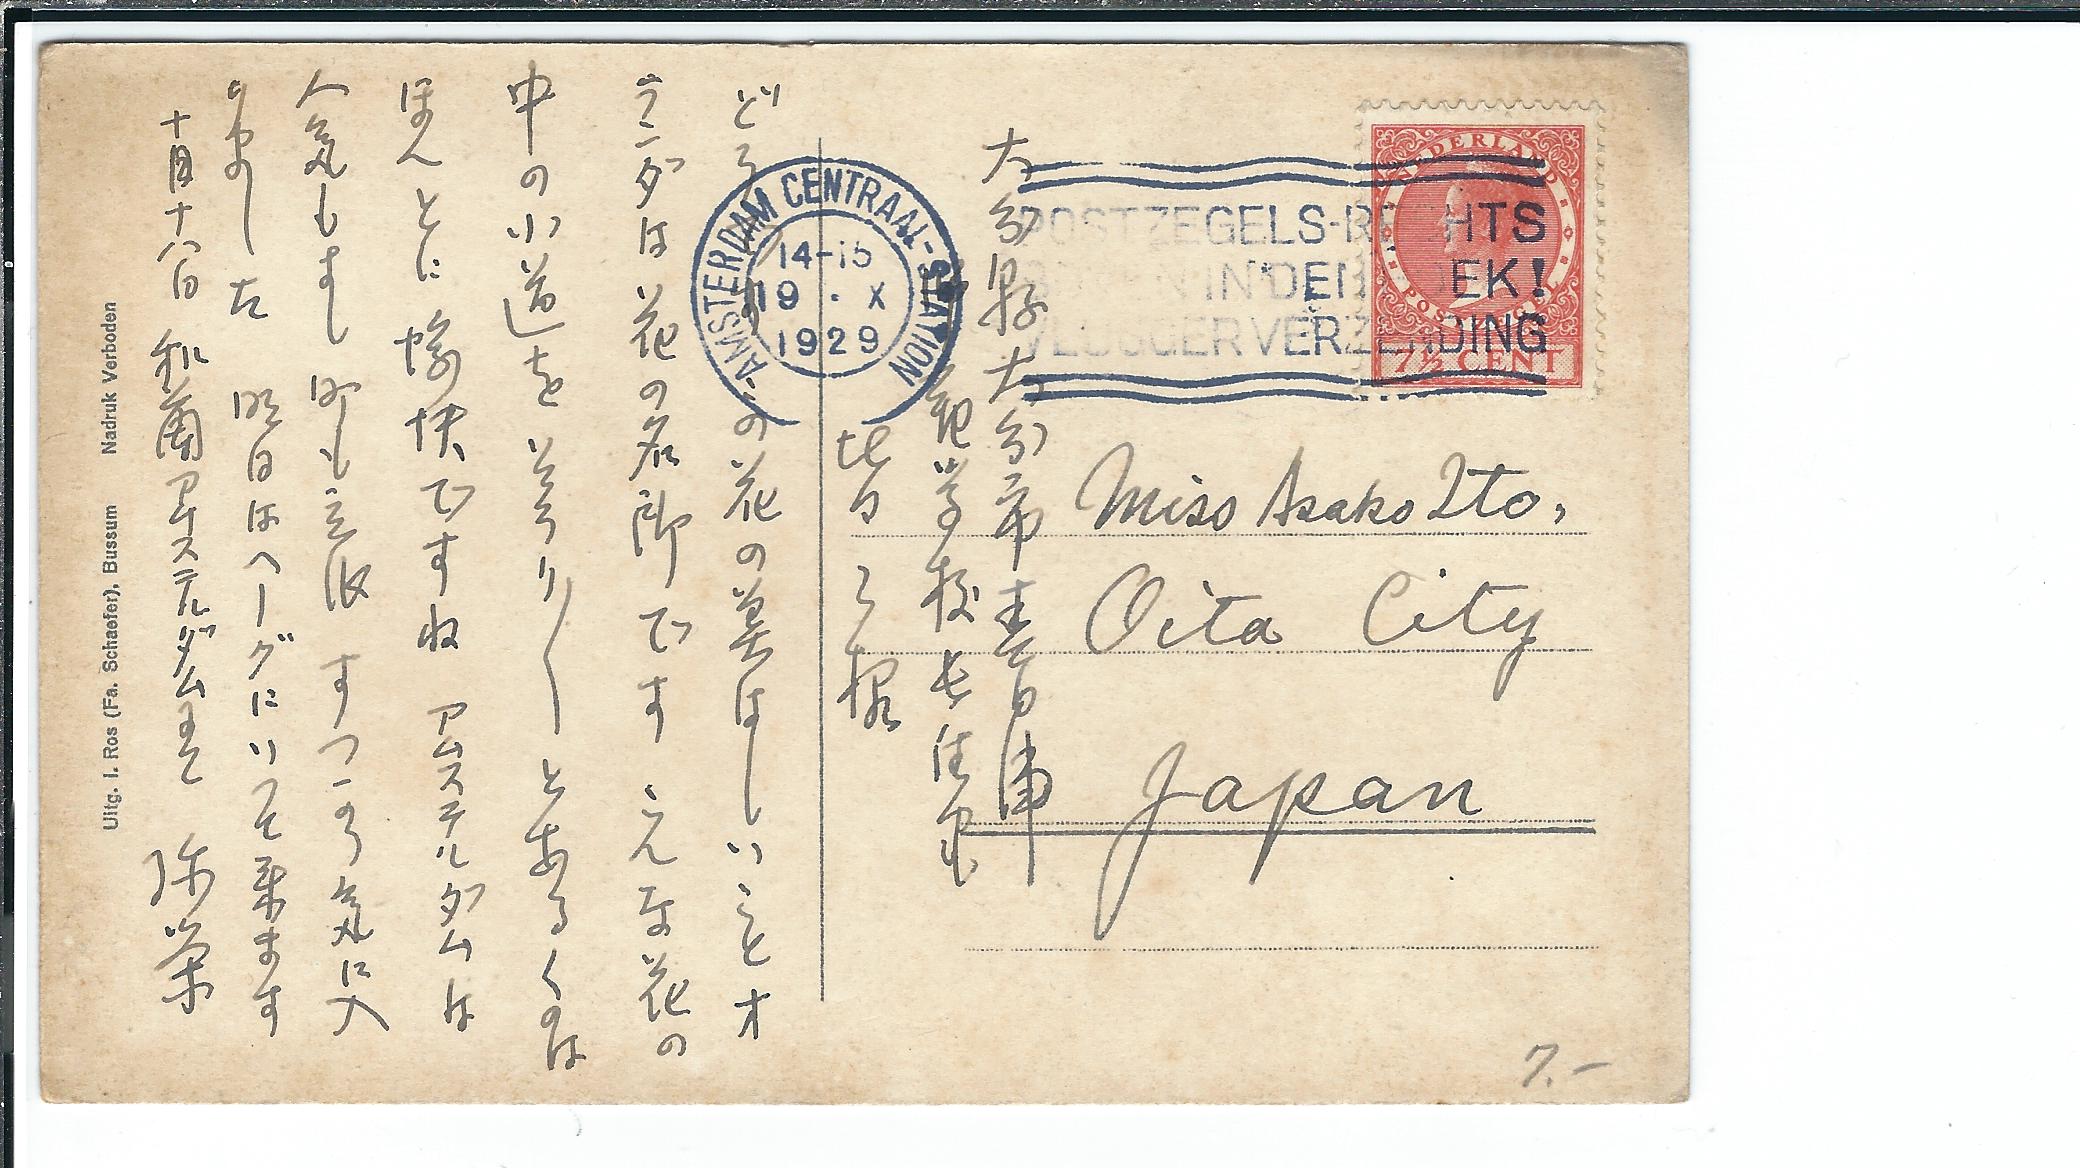 どう
この花の美はしいことオ
ランダは花の名所です こんな花の
中の小道をそろり〳〵とあるくのは
ほんとに愉快ですね アムステルダムは
人気もよし 町も立派 すつかり気に入
りました 明日はヘーグにいつて来ます
十月十八日 和蘭アムステルダムにて 弥栄
大分県大分市
範学校長住宅
様
Miss Asako Ito,
Oita City
Japan
AMSTERDAM CENTRAAL-STATION
14-15
19 . X
1929
POSTZEGELS-RECHTS
IN DEN HOEK!
VLUGGER VERZENDING
NEDERLAND
7½ CENT
Uitg. I. Ros (Fa. Schaefer), Bussum Nadruk Verboden
7.-